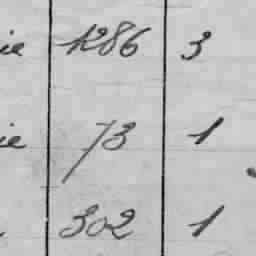 ie 1286 3
ie 73 1
302 1